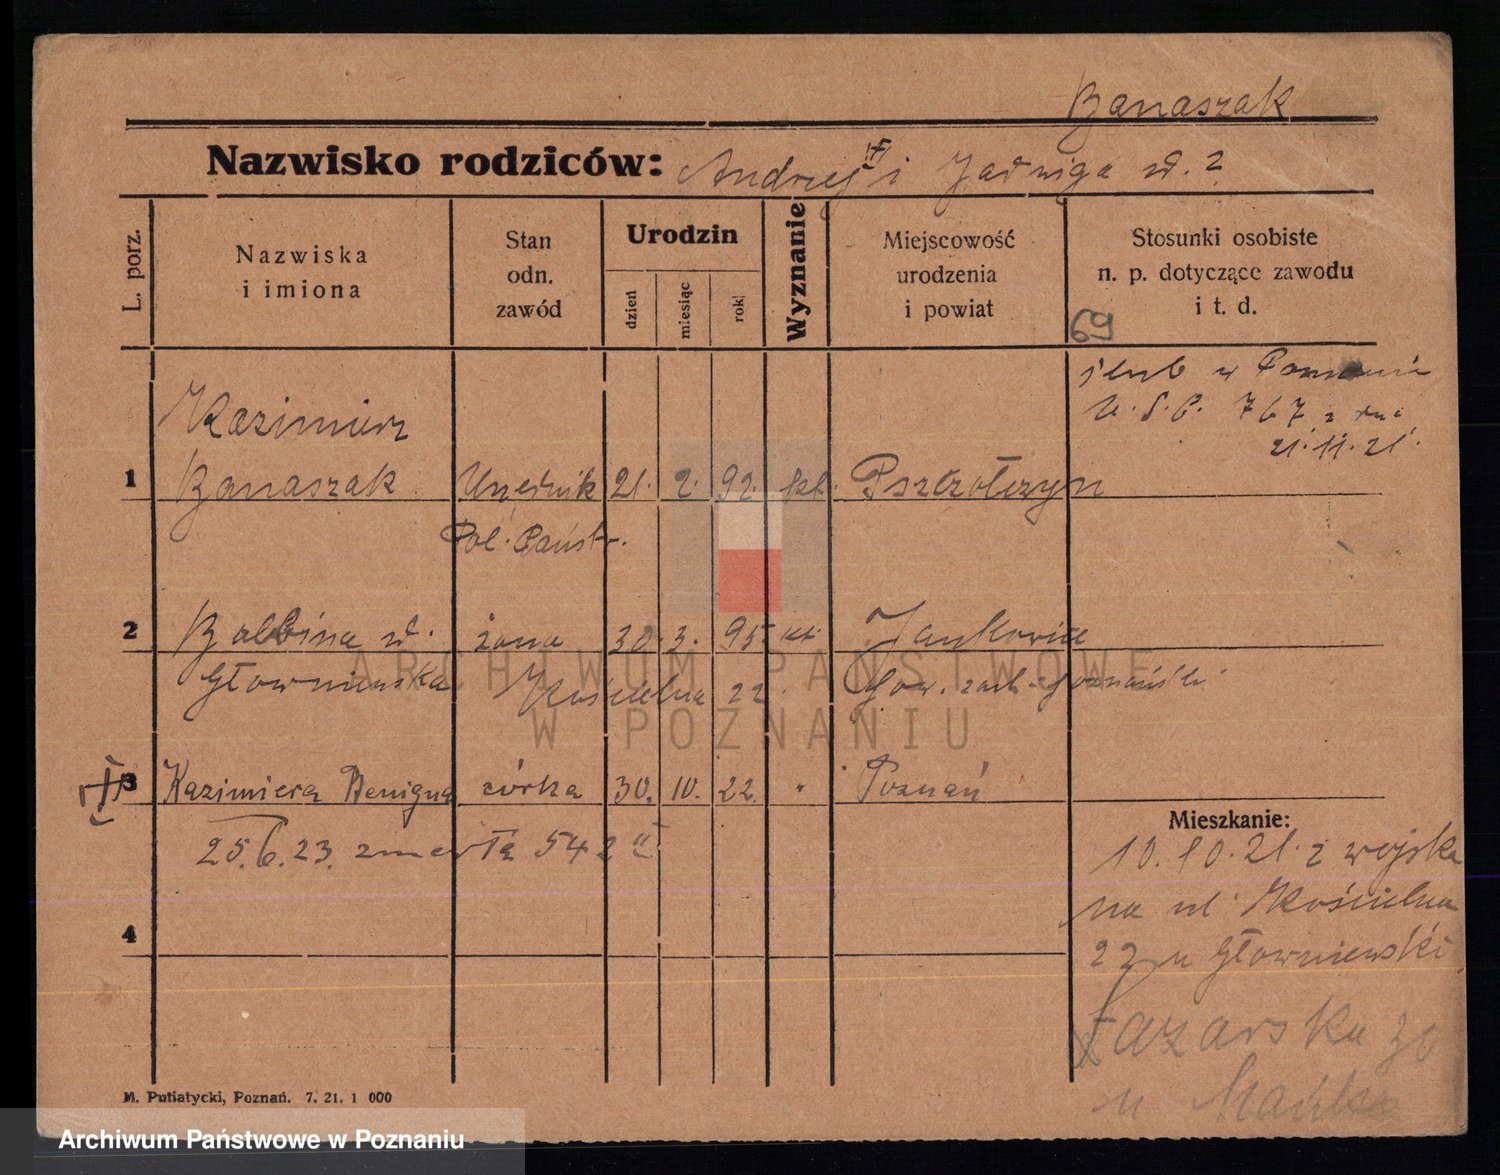 Banaszak
Nazwisko rodziców: Andrzej i Jadwiga zd. ?
L. porz.
Nazwiska
i imiona
Stan
odn.
zawód
Urodzin
dzień
miesiąc
rok
Wyznanie
Miejscowość
urodzenia
i powiat
Stosunki osobiste
n. p. dotyczące zawodu
i t. d.
69
ślub w Poznaniu
U.S.C. 767 z dnia
21.11.21.
Kazimierz
1 Banaszak Urzędnik 21. 2. 92. kt. Pszczółczyn
Pol. Państw.
2 Balbina zd. żona 30. 3. 95 kt. Jankowice
Głowniewska Kościelna 22 pow. zach. poznański
3 Kazimiera Benigna córka 30. 10. 22. " Poznań
25.6.23. zmarła 542 II
Mieszkanie:
10.10.21. z wojska
na ul. Kościelna
22 u Głowniewski
4
Łazarska 30
u
M. Putiatycki, Poznań. 7. 21. 1 000
ARCHIWUM PAŃSTWOWE
W POZNANIU
Archiwum Państwowe w Poznaniu